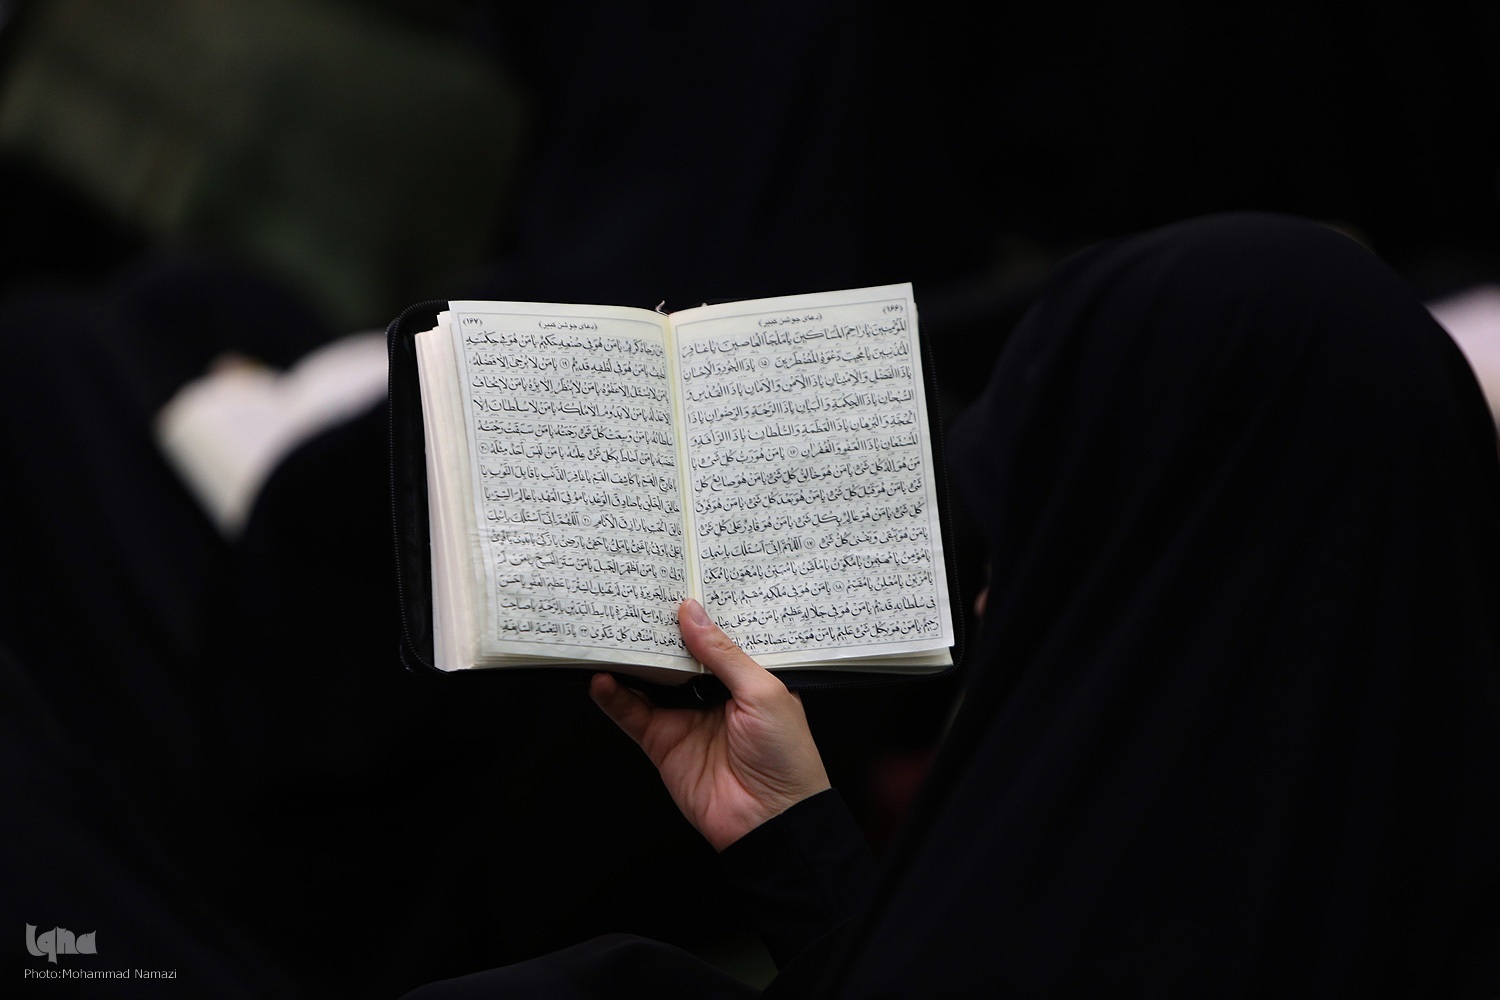 (۱۶۶)
(دعای جوشن کبیر)
الْمُؤْمِنِينَ يَا رَاحِمَ الْمَسَاكِينَ يَا مَلْجَأَ الْعَاصِينَ يَا غَافِرَ
الْمُذْنِبِينَ يَا مُجِيبَ دَعْوَةِ الْمُضْطَرِّينَ ۱۵ يَا ذَا الْجُودِ وَالْإِحْسَانِ
يَا ذَا الْفَضْلِ وَالْإِمْتِنَانِ يَا ذَا الْأَمْنِ وَالْأَمَانِ يَا ذَا الْقُدْسِ وَ
السُّبْحَانِ يَا ذَا الْحِكْمَةِ وَالْبَيَانِ يَا ذَا الرَّحْمَةِ وَالرِّضْوَانِ يَا ذَا
الْحُجَّةِ وَالْبُرْهَانِ يَا ذَا الْعَظَمَةِ وَالسُّلْطَانِ يَا ذَا الرَّأْفَةِ وَ
الْمُسْتَعَانِ يَا ذَا الْعَفْوِ وَالْغُفْرَانِ ۱۶ يَا مَنْ هُوَ رَبُّ كُلِّ شَيْءٍ يَا
مَنْ هُوَ إِلٰهُ كُلِّ شَيْءٍ يَا مَنْ هُوَ خَالِقُ كُلِّ شَيْءٍ يَا مَنْ هُوَ صَانِعُ كُلِّ
شَيْءٍ يَا مَنْ هُوَ قَبْلَ كُلِّ شَيْءٍ يَا مَنْ هُوَ بَعْدَ كُلِّ شَيْءٍ يَا مَنْ هُوَ فَوْقَ
كُلِّ شَيْءٍ يَا مَنْ هُوَ عَالِمٌ بِكُلِّ شَيْءٍ يَا مَنْ هُوَ قَادِرٌ عَلَى كُلِّ شَيْءٍ
يَا مَنْ هُوَ يَبْقَى وَيَفْنَى كُلُّ شَيْءٍ ۱۷ اَللّٰهُمَّ إِنِّي أَسْئَلُكَ بِاسْمِكَ
يَا مُؤْمِنُ يَا مُهَيْمِنُ يَا مُكَوِّنُ يَا مُلَقِّنُ يَا مُبَيِّنُ يَا مُهَوِّنُ يَا مُمَكِّنُ
يَا مُزَيِّنُ يَا مُعْلِنُ يَا مُقَسِّمُ ۱۸ يَا مَنْ هُوَ فِي مُلْكِهِ مُقِيمٌ يَا مَنْ هُوَ
فِي سُلْطَانِهِ قَدِيمٌ يَا مَنْ هُوَ فِي جَلَالِهِ عَظِيمٌ يَا مَنْ هُوَ عَلَى
رَحِيمٌ يَا مَنْ هُوَ بِكُلِّ شَيْءٍ عَلِيمٌ يَا مَنْ هُوَ بِمَنْ عَصَاهُ حَلِيمٌ
(۱۶۷)
(دعای جوشن کبیر)
رَجَاهُ كَرِيمٌ يَا مَنْ هُوَ فِي صُنْعِهِ حَكِيمٌ يَا مَنْ هُوَ فِي حِكْمَتِهِ
لَطِيفٌ يَا مَنْ هُوَ فِي لُطْفِهِ قَدِيمٌ ۱۹ يَا مَنْ لَا يُرْجَى إِلَّا فَضْلُهُ
يَا مَنْ لَا يُسْئَلُ إِلَّا عَفْوُهُ يَا مَنْ لَا يُنْظَرُ إِلَّا بِرُّهُ يَا مَنْ لَا يُخَافُ
إِلَّا عَدْلُهُ يَا مَنْ لَا يَدُومُ إِلَّا مُلْكُهُ يَا مَنْ لَا سُلْطَانَ إِلَّا
سُلْطَانُهُ يَا مَنْ وَسِعَتْ كُلَّ شَيْءٍ رَحْمَتُهُ يَا مَنْ سَبَقَتْ رَحْمَتُهُ
غَضَبَهُ يَا مَنْ أَحَاطَ بِكُلِّ شَيْءٍ عِلْمُهُ يَا مَنْ لَيْسَ أَحَدٌ مِثْلَهُ ۲۰
يَا فَارِجَ الْهَمِّ يَا كَاشِفَ الْغَمِّ يَا غَافِرَ الذَّنْبِ يَا قَابِلَ التَّوْبِ يَا
خَالِقَ الْخَلْقِ يَا صَادِقَ الْوَعْدِ يَا مُوفِيَ الْعَهْدِ يَا عَالِمَ السِّرِّ يَا
فَالِقَ الْحَبِّ يَا رَازِقَ الْأَنَامِ ۲۱ اَللّٰهُمَّ إِنِّي أَسْئَلُكَ بِاسْمِكَ
يَا عَلِيُّ يَا وَفِيُّ يَا غَنِيُّ يَا مَلِيُّ يَا حَفِيُّ يَا رَضِيُّ يَا زَكِيُّ يَا بَدِيُّ يَا قَوِيُّ
يَا وَلِيُّ ۲۲ يَا مَنْ أَظْهَرَ الْجَمِيلَ يَا مَنْ سَتَرَ الْقَبِيحَ يَا مَنْ لَمْ
يُؤَاخِذْ بِالْجَرِيرَةِ يَا مَنْ لَمْ يَهْتِكِ السِّتْرَ يَا عَظِيمَ الْعَفْوِ يَا حَسَنَ
التَّجَاوُزِ يَا وَاسِعَ الْمَغْفِرَةِ يَا بَاسِطَ الْيَدَيْنِ بِالرَّحْمَةِ يَا صَاحِبَ
كُلِّ نَجْوَى يَا مُنْتَهَى كُلِّ شَكْوَى ۲۳ يَا ذَا النِّعْمَةِ السَّابِغَةِ
Iqna
Photo:Mohammad Namazi